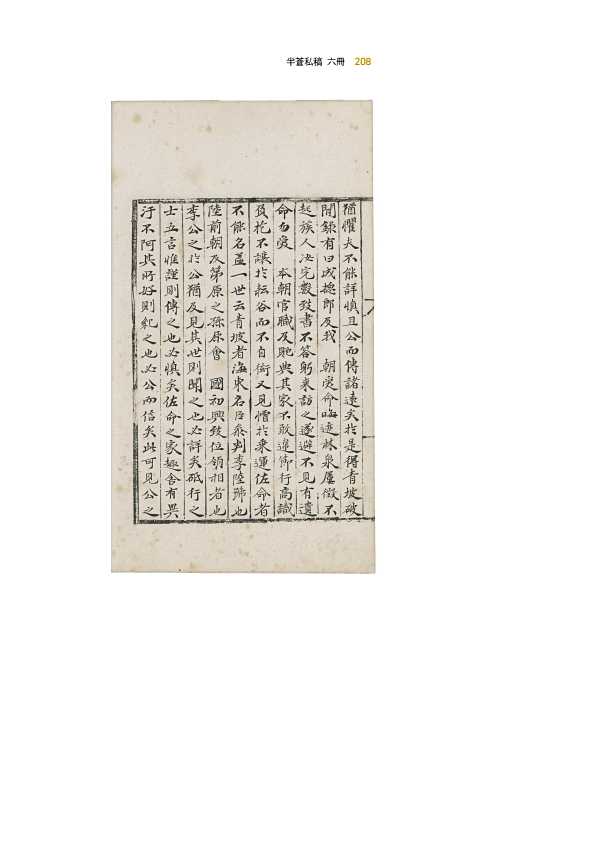 半蒼私稿 六冊 208
猶懼夫不能詳愼且公而傳諸遠矣於是得青坡破
閒錄有曰戎摠郎及我 朝受命晦迹林泉屢徵不
起族人决完數致書不答躬來訪之遂避不見有遺
命勿受 本朝官職及貤典其家不敢違師行高識
負抱不讓於耘谷而不自衒又見憎於乘運佐命者
不能名盖一世云青坡者海東名臣叅判李陸號也
陸前朝及第原之孫原會 國初興致位領相者也
李公之於公猶及見其世則聞之也必詳矣砥行之
士立言惟謹則傳之也必愼矣佐命之家趣舍有異
汙不阿其所好則紀之也必公而信矣此可見公之